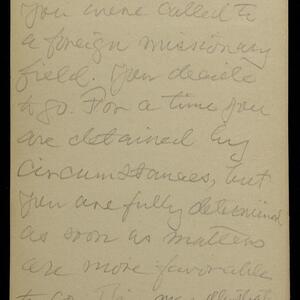 you were called to
a foreign missionary
field. You decide
to go. For a time you
are detained by
circumstances, but
you are fully determined
as soon as matters
are more favorable
to go. This may illustrate